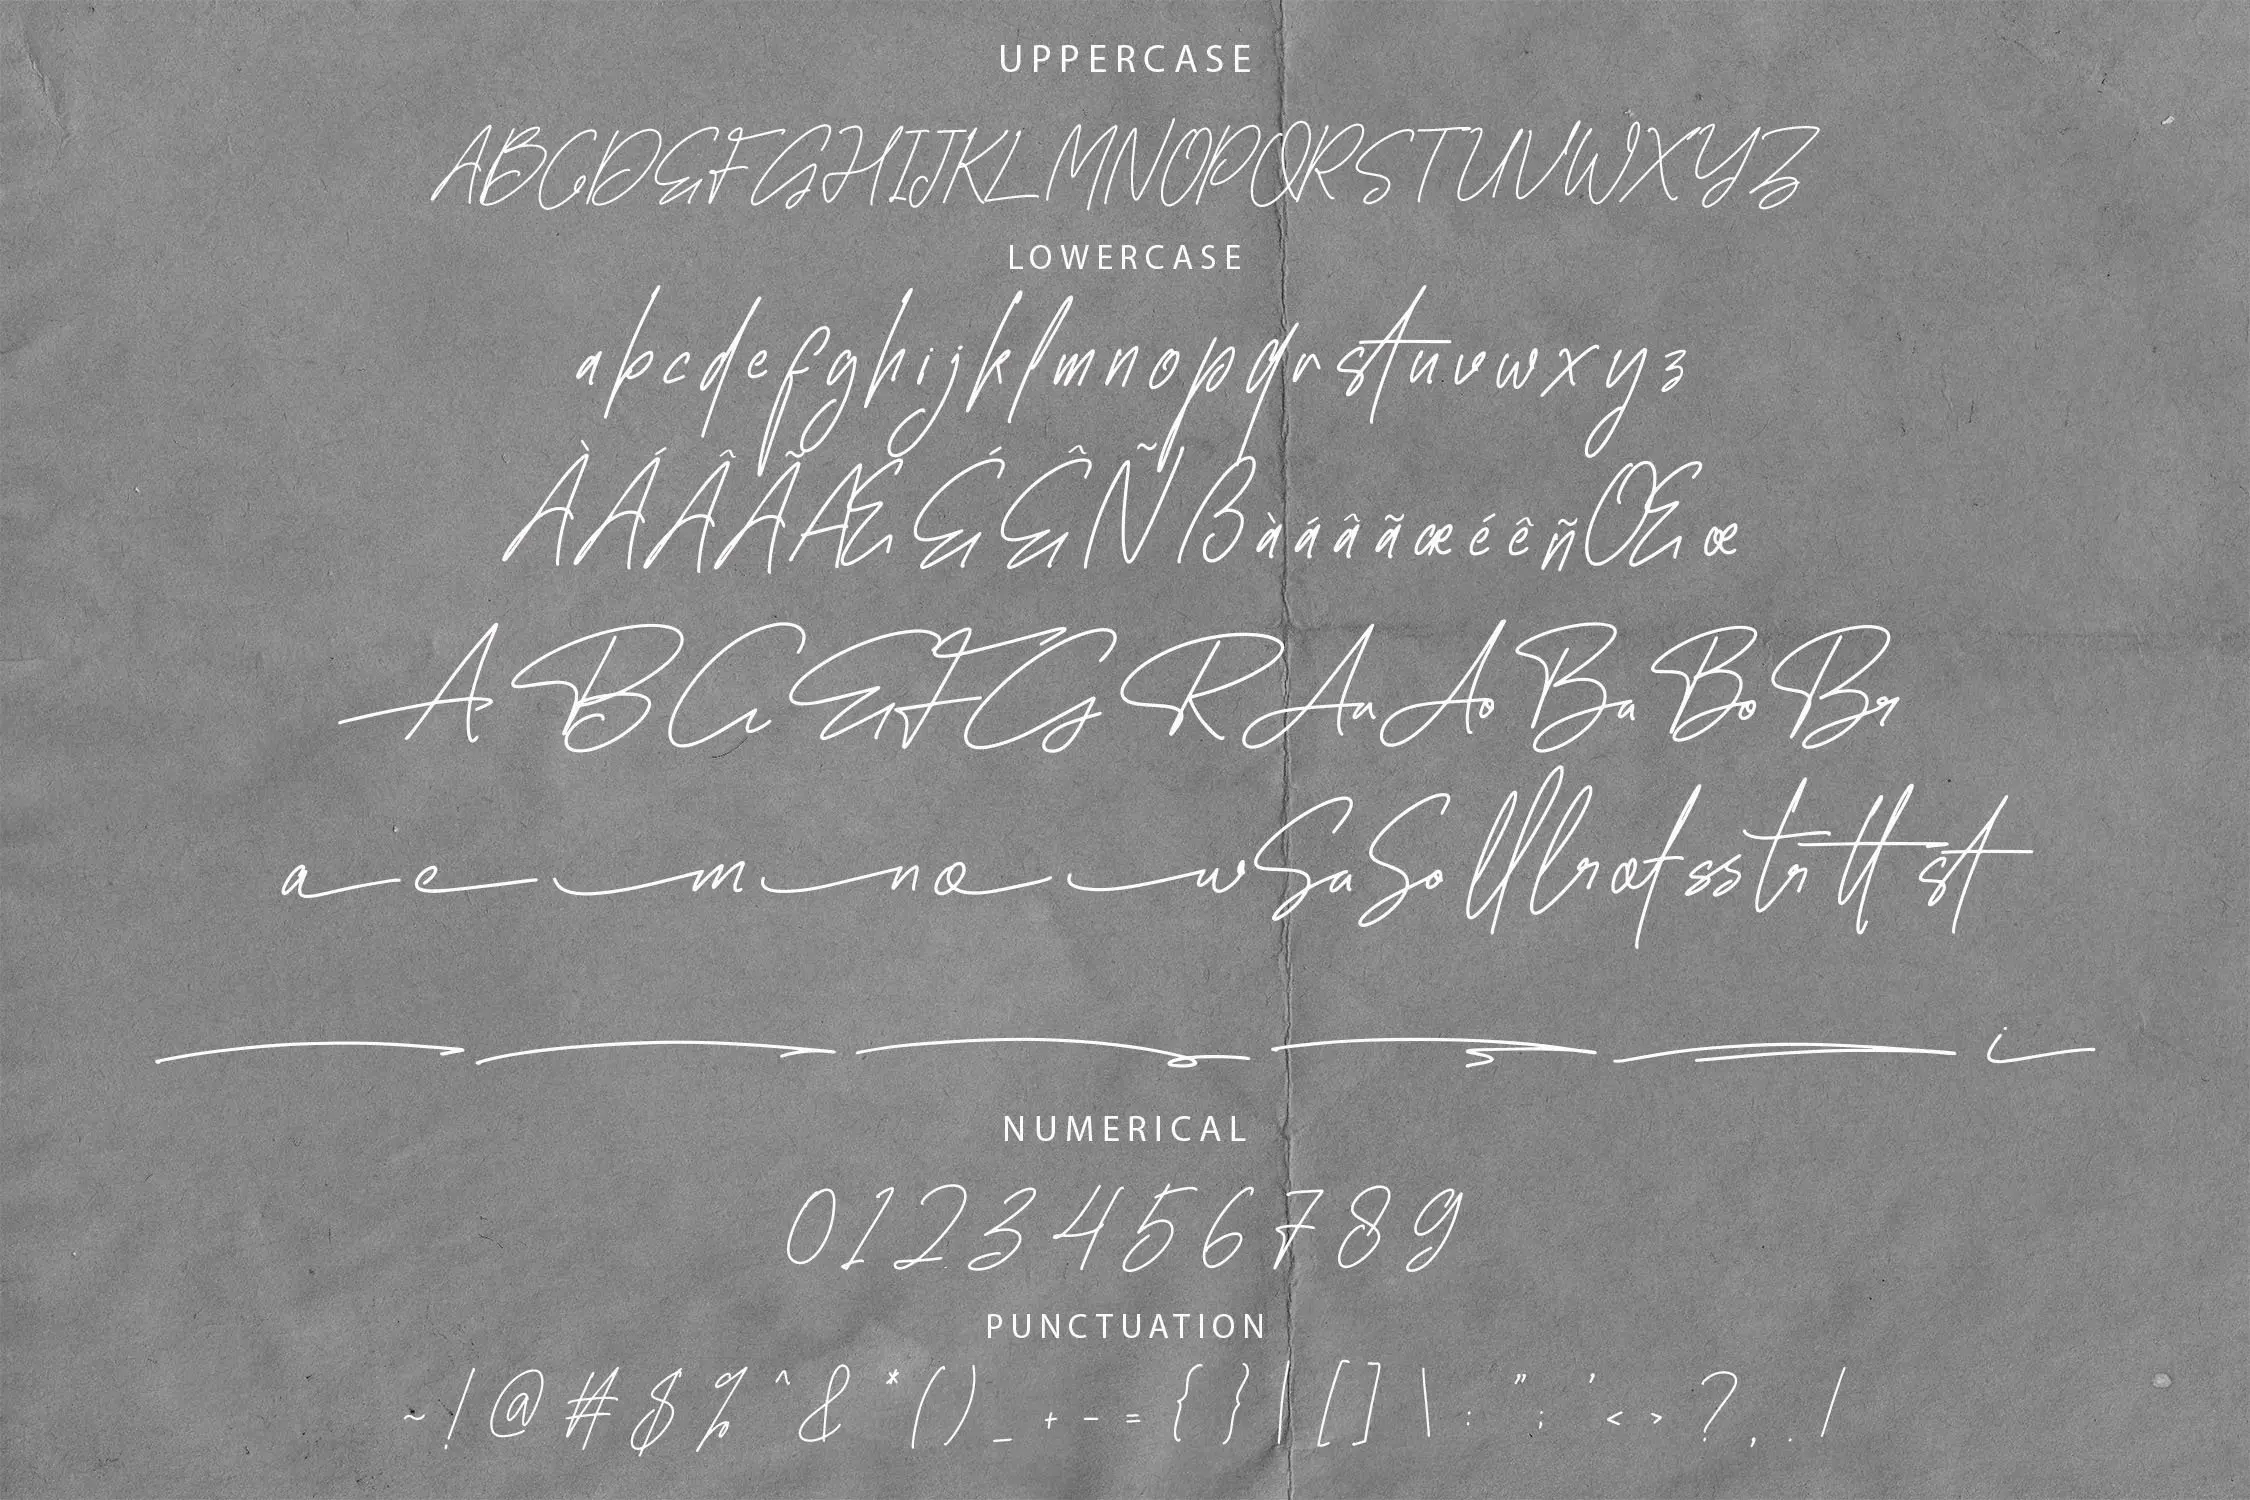 UPPERCASE
ABCDEFGHIJKLMNOPQRSTUVWXYZ
LOWERCASE
abcdefghijklmnopqrstuvwxyz
ÀÁÂÃÆÉÊÑßàáâãæéêñŒœ
ABCEFGRAaAoBaBoBr
aemnowSaSolllrofsstrttst
i
NUMERICAL
0123456789
PUNCTUATION
~!@#$%^&*()_+-={}|[]\:";'<>?,./